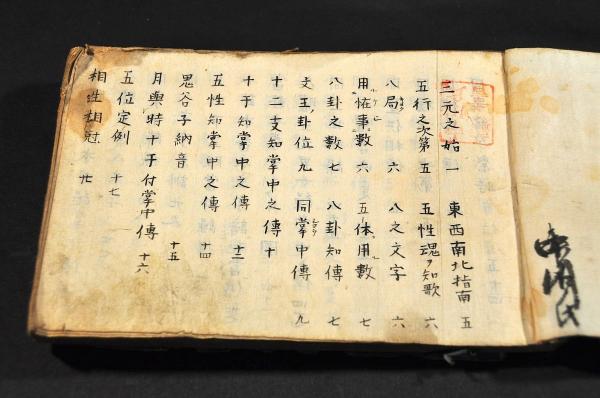 三元之始 一 東西南北指南 五
五行之次第 五 五性魂ヲ知歌 六
八局 六 八之文字 六
用恠事数 六 五体用數 七
八卦之数 七 八卦知傳 七
文王ノ卦位 九 同掌中傳 九
十二支知掌中之傳 十
十干知掌中之傳 十二
五性知掌中之傳 十四
鬼谷子納音 十五
月與時十干付掌中傳 十六
五位定例 十七
相性相尅 廿